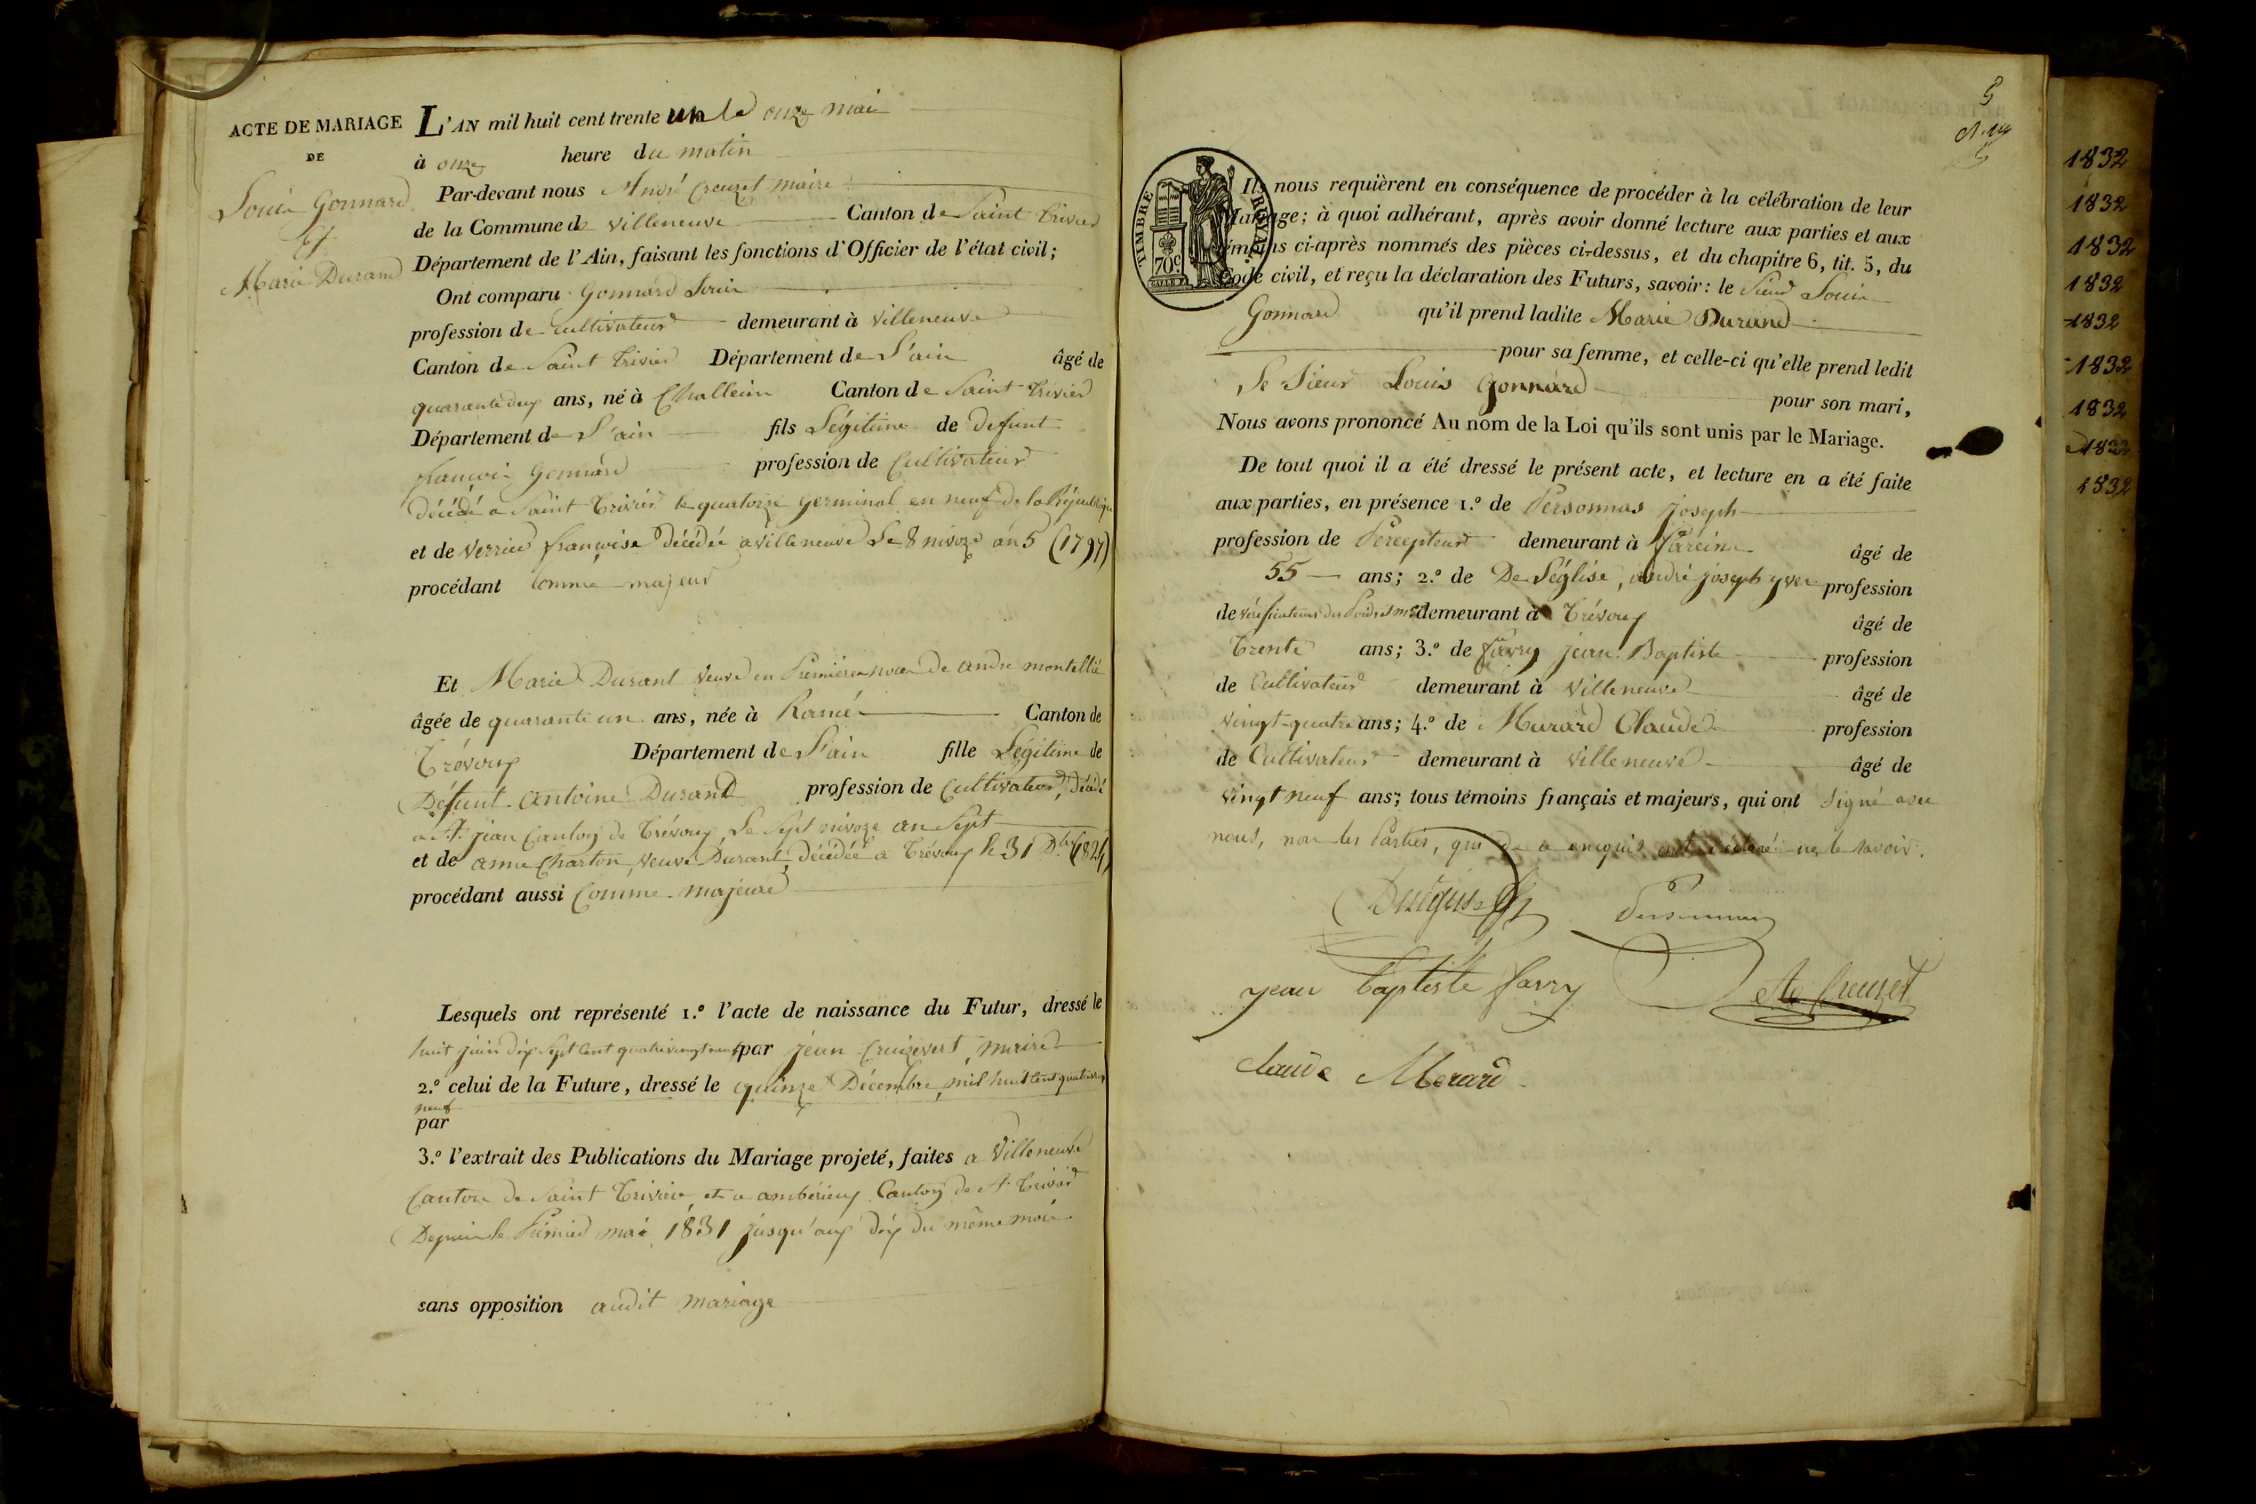 ACTE DE MARIAGE
DE
Louis Gonnard
Et
Marie Durand
L'AN mil huit cent trente un le onze mai
à onze heure du matin
Par-devant nous André Creuzet maire
de la Commune de Villeneuve Canton de Saint Trivier
Département de l'Ain, faisant les fonctions d'Officier de l'état civil;
Ont comparu Gonnard Louis
profession de cultivateur demeurant à Villeneuve
Canton de Saint Trivier Département de L'ain âgé de
quarante deux ans, né à Challeins Canton de Saint Trivier
Département de L'ain fils Légitime de defunt
françois Gonnard profession de Cultivateur
décédé a Saint Trivier le quatorze germinal en neuf de la République
et de Verrier françoise décédée a villeneuve Le 8 nivoze an 5 (1797)
procédant Comme majeur
Et Marie Durant veuve en Premieres noces de andre montellié
âgée de quarante un ans, née à Rancé Canton de
Trévoux Département de L'ain fille Légitime de
Défunt antoine Durand profession de Cultivateur, décédé
a St. jean Canton de Trévoux Le Sept nivoze an Sept
et de anne Charton, veuve Durand, décédée a Trévoux le 31 Dbre (1824)
procédant aussi Comme majeure
Lesquels ont représenté 1.º l'acte de naissance du Futur, dressé le
huit juin dix Sept Cent quatrevingt neuf par jean Cruizevert, maire
2.º celui de la Future, dressé le quinze Décembre, mil huit Cent quatrevingt
neuf
par
3.º l'extrait des Publications du Mariage projeté, faites a Villeneuve
Canton de Saint Trivier et a ambérieux Canton de St Trivier
Depuis le Premier mai 1831 jusqu'aux dix du même mois
sans opposition audit mariage
5
TIMBRE ROYAL
70c
Ils nous requièrent en conséquence de procéder à la célébration de leur
Mariage; à quoi adhérant, après avoir donné lecture aux parties et aux
témoins ci-après nommés des pièces ci-dessus, et du chapitre 6, tit. 5, du
Code civil, et reçu la déclaration des Futurs, savoir: le Sieur Louis
Gonnard qu'il prend ladite Marie Durand
pour sa femme, et celle-ci qu'elle prend ledit
Le Sieur Louis Gonnard pour son mari,
Nous avons prononcé Au nom de la Loi qu'ils sont unis par le Mariage.
De tout quoi il a été dressé le présent acte, et lecture en a été faite
aux parties, en présence 1.º de Personnas joseph
profession de Percepteur demeurant à fareins âgé de
55 ans; 2.º de De Léglise, andré joseph yves profession
de vérificateur des Poids et mes. demeurant à Trévoux âgé de
Trente ans; 3.º de favry jean Baptiste profession
de Cultivateur demeurant à Villeneuve âgé de
vingt-quatre ans; 4.º de Murard Claude profession
de Cultivateur demeurant à Villeneuve âgé de
vingt neuf ans; tous témoins français et majeurs, qui ont Signé avec
nous, non les Parties, qui de ce enquis ont déclaré ne le savoir.
Personnas
jean baptiste favry
Ae Creuzet
claude Merard
1832
1832
1832
1832
1832
1832
1832
1832
1832